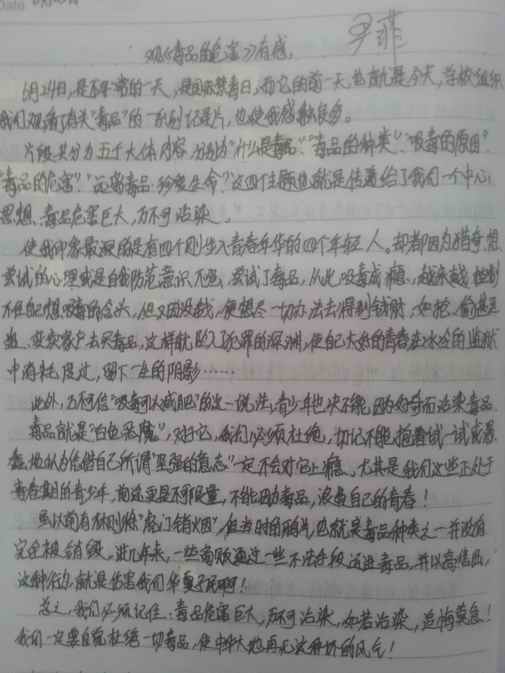 尹菲
观《毒品的危害》有感
6月24日,是不平常的一天,是国际禁毒日,而它的前一天,也就是今天,学校组织
我们观看了有关"毒品"的一系列记录片,也使我感触良多。
片段共分为五个大体内容,分别为"什么是毒品"、"毒品的种类"、"吸毒的原因"、
"毒品的危害"、"远离毒品 珍爱生命"。这四个主题也就是传递给了我们一个中心
思想,毒品危害巨大,万不可沾染。
使我印象最深的是有四个刚步入青春年华的四个年轻人。却都因为猎奇想
尝试的心理或是自我防范意识不强,尝试了毒品,从此吸毒成瘾,越来越控制
不住自己想吸毒的念头,但又因没钱,便想尽一切办法去得到钱财,如抢、偷甚至
变卖家产去买毒品,这样就陷入了犯罪的深渊,使自己大好的青春在冰冷的监狱
中消耗度过,留下一生的阴影……
此外,万不可信"吸毒可以减肥"的这一说法,青少年也决不能因为好奇而沾染毒品。
毒品就是"白色恶魔",对于它,我们必须杜绝,切记不能抱着试一试或是
地认为凭借自己所谓"坚强的意志"一定不会对它上瘾。尤其是我们这些正处于
青春期的青少年,前途更是不可限量,不能因为毒品,浪费自己的青春!
虽以前有林则徐"虎门销烟",但当时的鸦片,也就是毒品种类之一并没有
完全被销毁,近几年来,一些商贩通过一些不法手段运进毒品,并以高价售出,
这种行为就是伤害我们华夏子民啊!
总之,我们必须记住:毒品危害巨大,万不可沾染,如若沾染,追悔莫及!
我们一定要自觉杜绝一切毒品,使中华大地再无这种坏的风气!